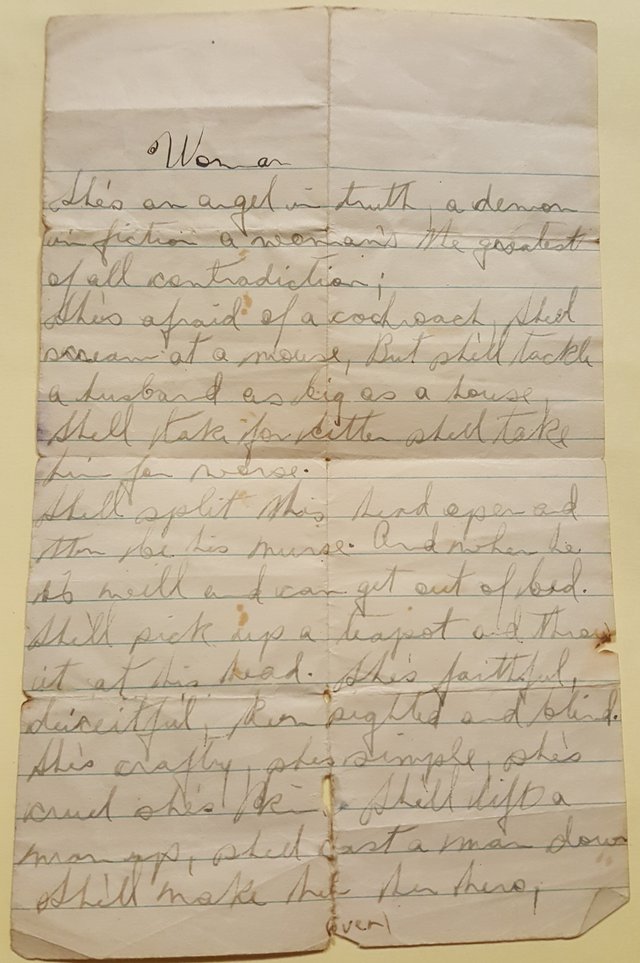 Woman
She's an angel in truth, a demon
in fiction a woman's the greatest
of all contradiction;
She's afraid of a cochroach, She'll
scream at a mouse, But she'll tackle
a husband as big as a house,
She'll take for better she'll take
him for worse.
She'll split his head open and
then be his nurse. And when he
is well and can get out of bed.
She'll pick up a teapot and throw
it at his head. She's faithful,
deceitful, keen sighted and blind.
She's crafty, she's simple, she's
cruel she's kin. She'll lift a
man up, she'll cast a man down
She'll make him her hero,
(over)